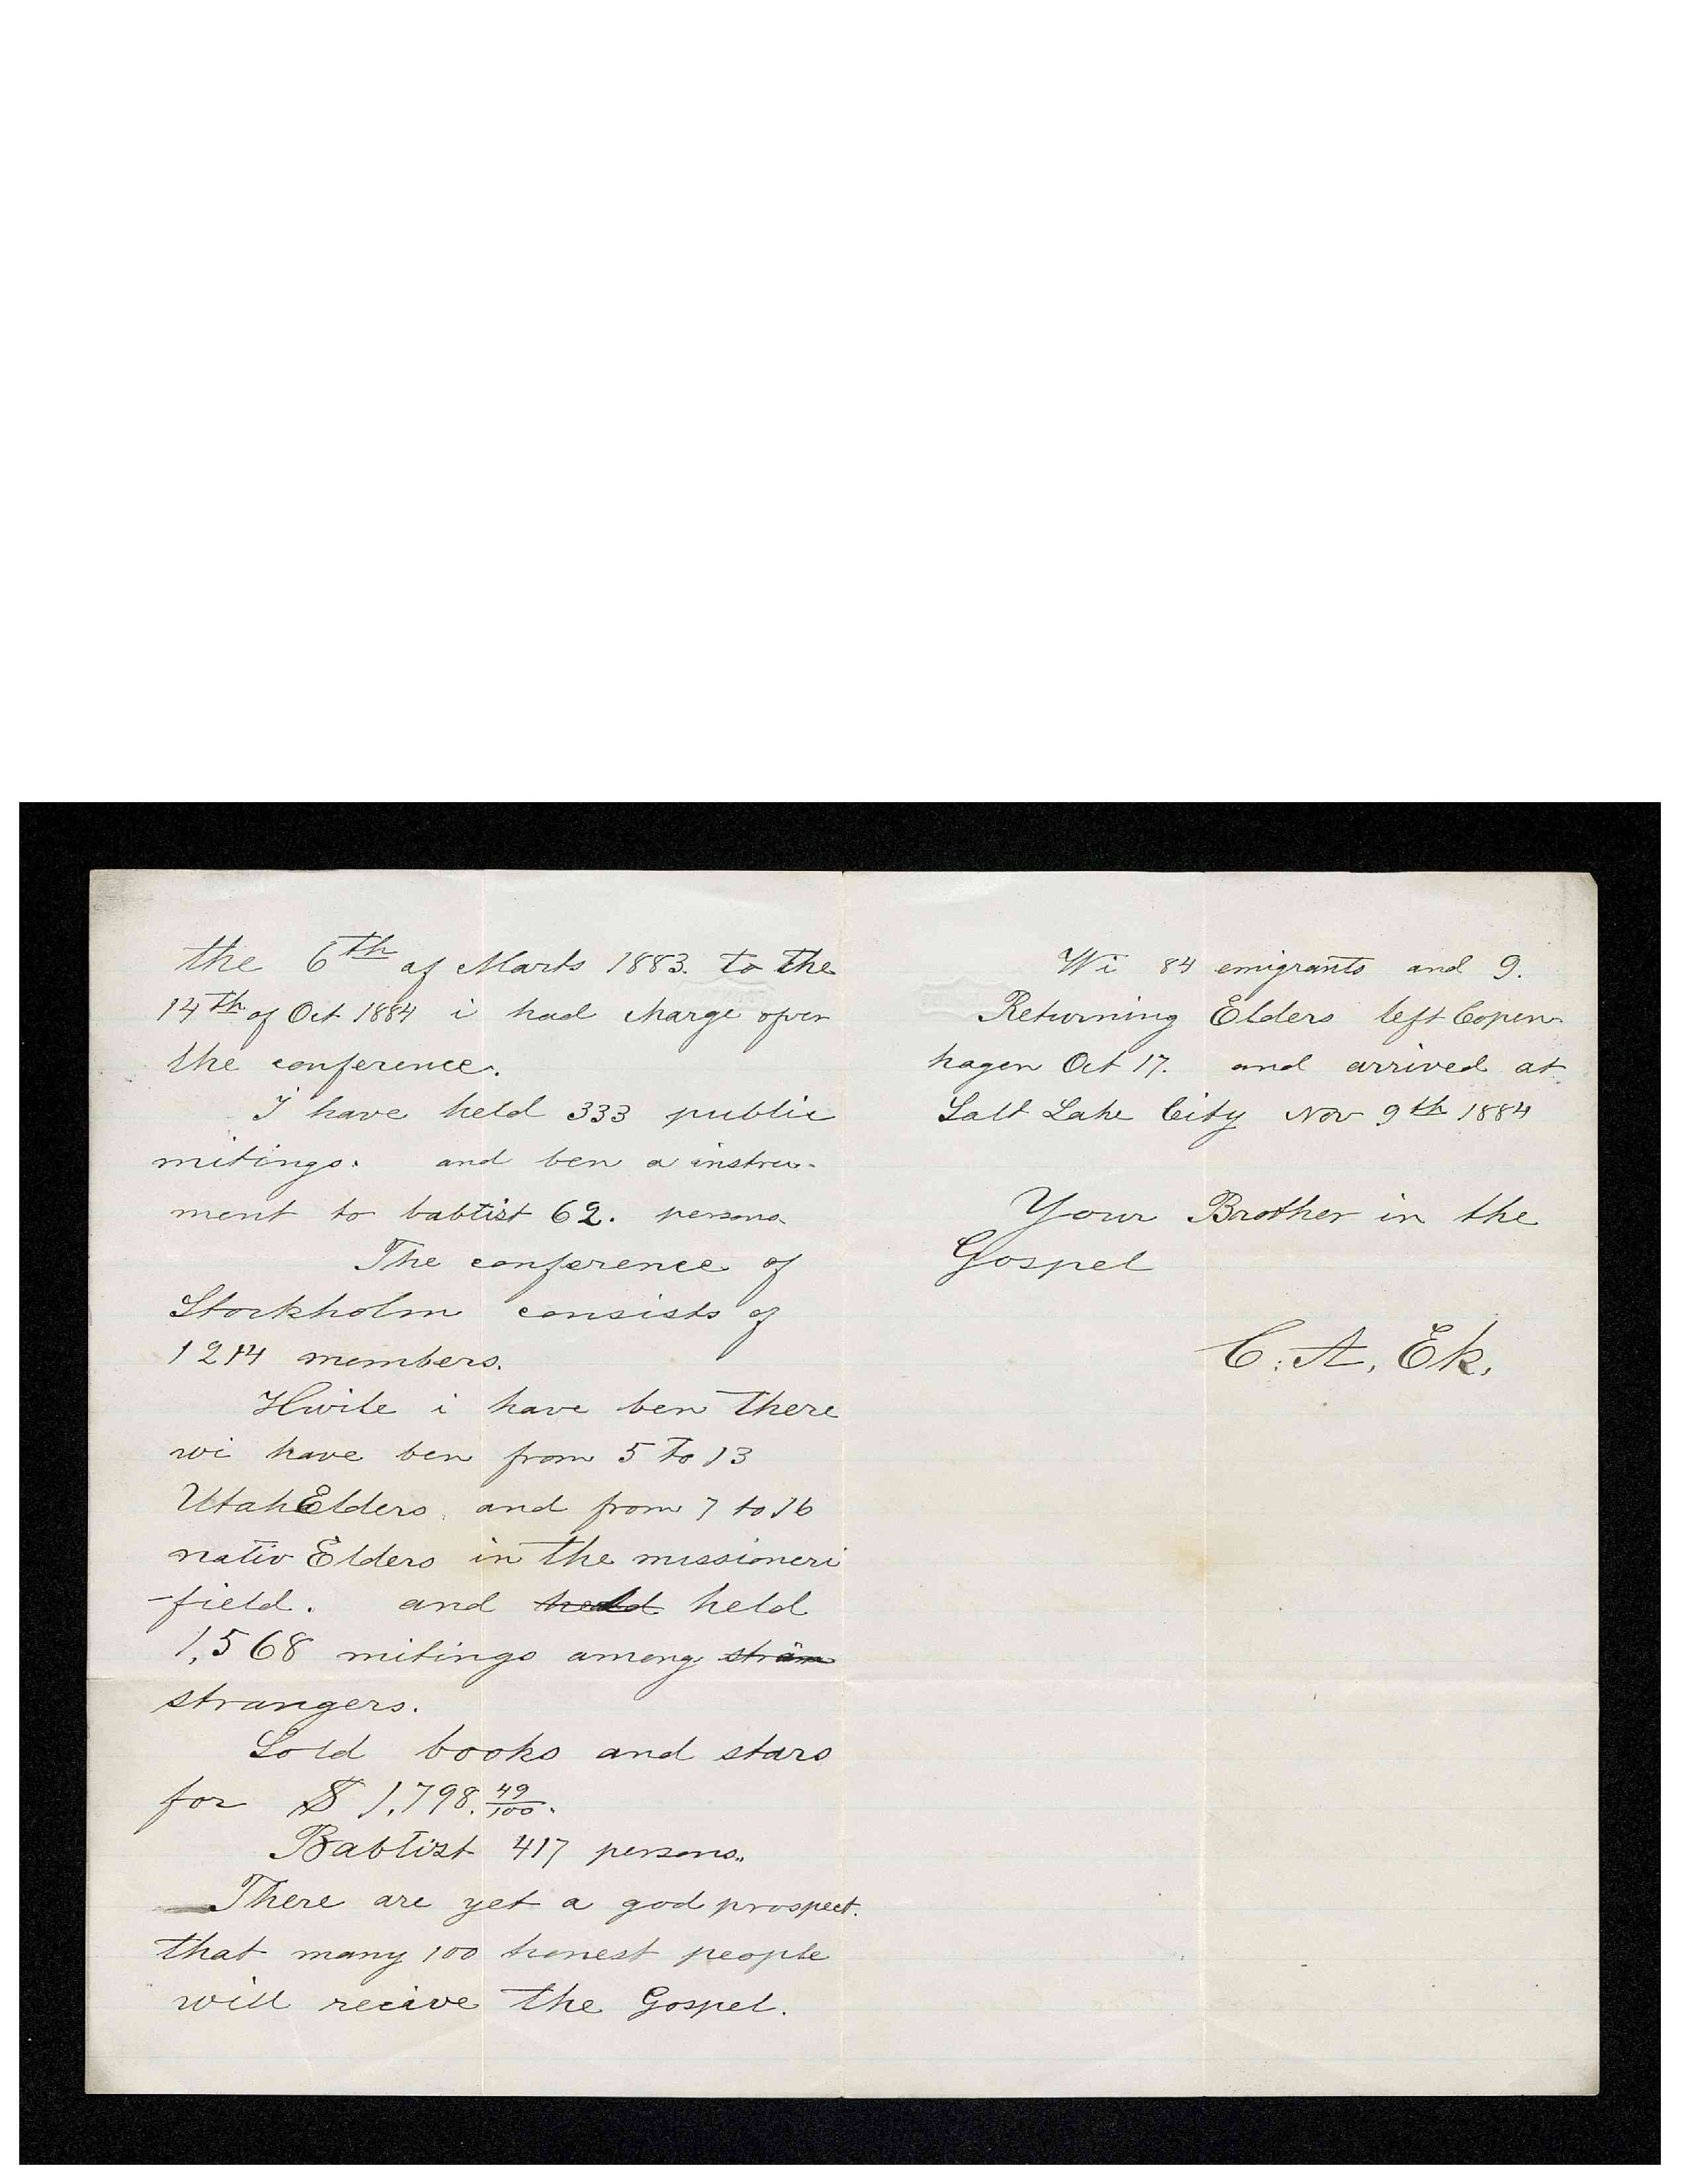 the 6th af Marts 1883. to the
14th of Oct 1884 i had charge ofver
the conference.
I have held 333 public
mitings. and ben a instru-
ment to babtist 62. persons.
The conference of
Stockholm consists of
1214 members.
Hwile i have ben there
wi have ben from 5 to 13
Utah Elders, and from 7 to 16
nativ Elders in the missioneri
-field. and held held
1,568 mitings among strän
strangers.
Sold books and stars
for $ 1,798. 49/100.
Babtist 417 persons.
There are yet a god prospect.
that many 100 honest people
will recive the Gospel.
Wi 84 emigrants and 9.
Returning Elders left Copen-
hagen Oct 17. and arrived at
Salt Lake City Nov 9th 1884
Your Brother in the
Gospel
C. A. Ek.